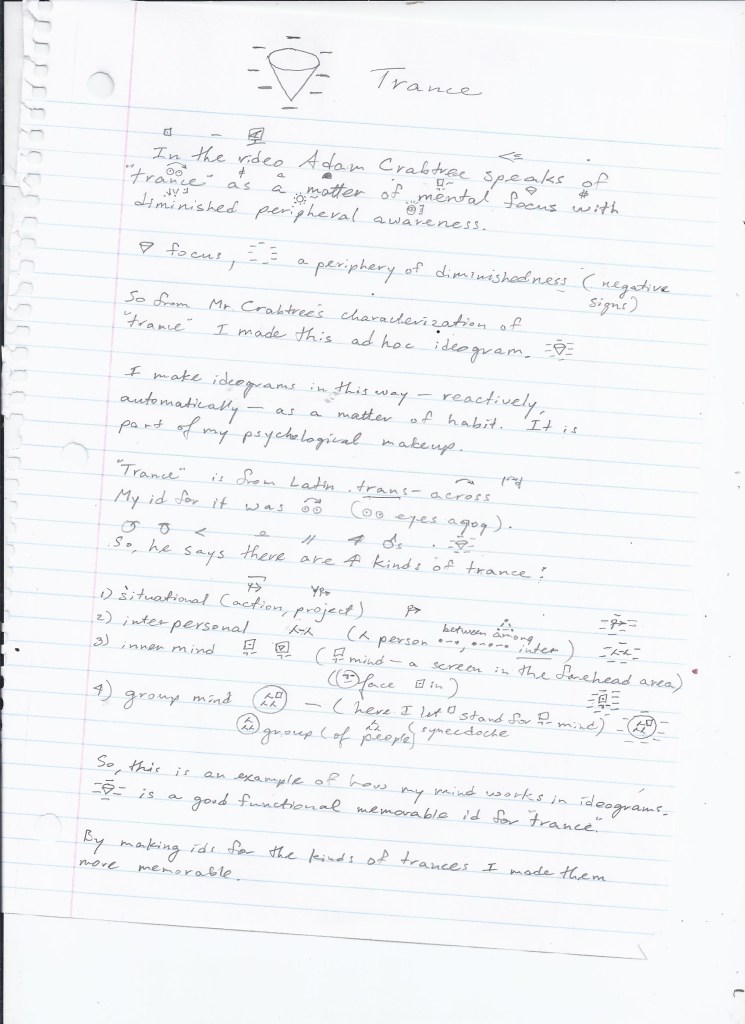 Trance
In the video Adam Crabtree speaks of
"trance" as a matter of mental focus with
diminished peripheral awareness.
focus, a periphery of diminishedness (negative
signs)
So from Mr Crabtree's characterization of
"trance" I made this ad hoc ideogram.
I make ideograms in this way – reactively,
automatically – as a matter of habit. It is
part of my psychological makeup.
"Trance" is from Latin trans- across
My id for it was (eyes agog).
So, he says there are 4 kinds of trance:
1) situational (action, project)
2) interpersonal (person between, among inter)
3) inner mind (mind – a screen in the forehead area)
(face in)
4) group mind – (here I let stand for mind)
group (of people) (synecdoche
So, this is an example of how my mind works in ideograms.
is a good functional memorable id for trance".
By making ids for the kinds of trances I made them
more memorable.